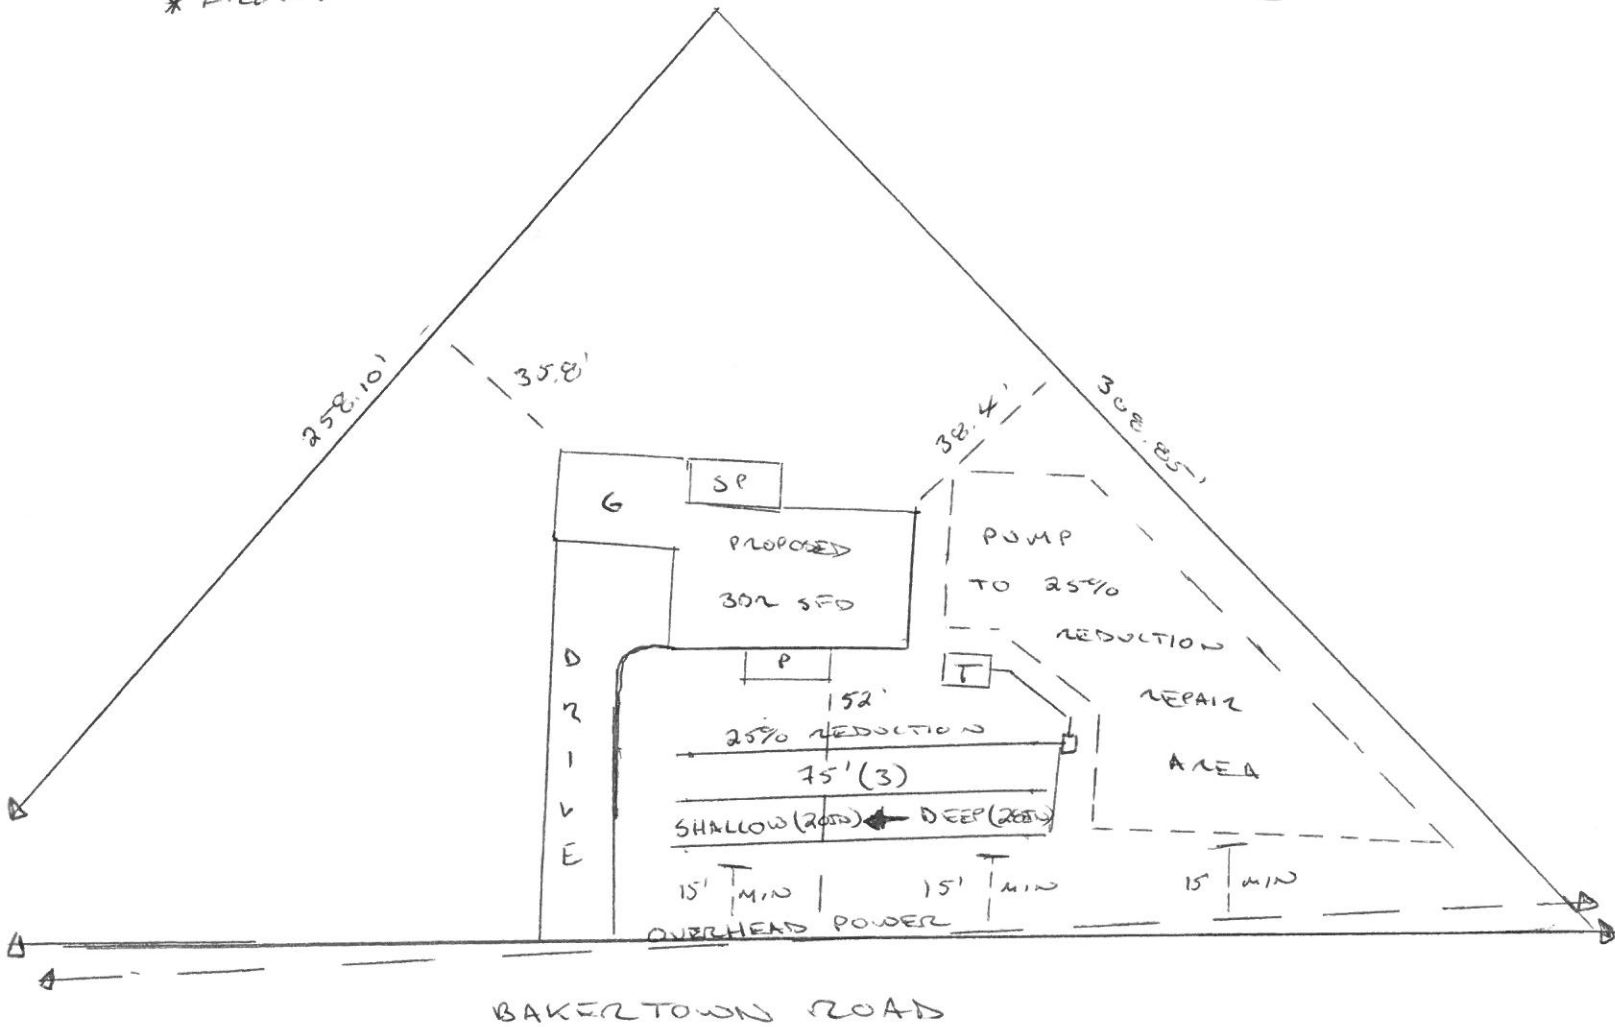 *
258.10'
35.8'
38.4'
308.85'
G
SP
PROPOSED
3BR SFD
PUMP
TO 25%
REDUCTION
REPAIR
AREA
DRIVE
P
T
52'
25% REDUCTION
75' (3)
SHALLOW (20IN) DEEP (26IN)
15' MIN
15' MIN
15 MIN
OVERHEAD POWER
BAKERTOWN ROAD